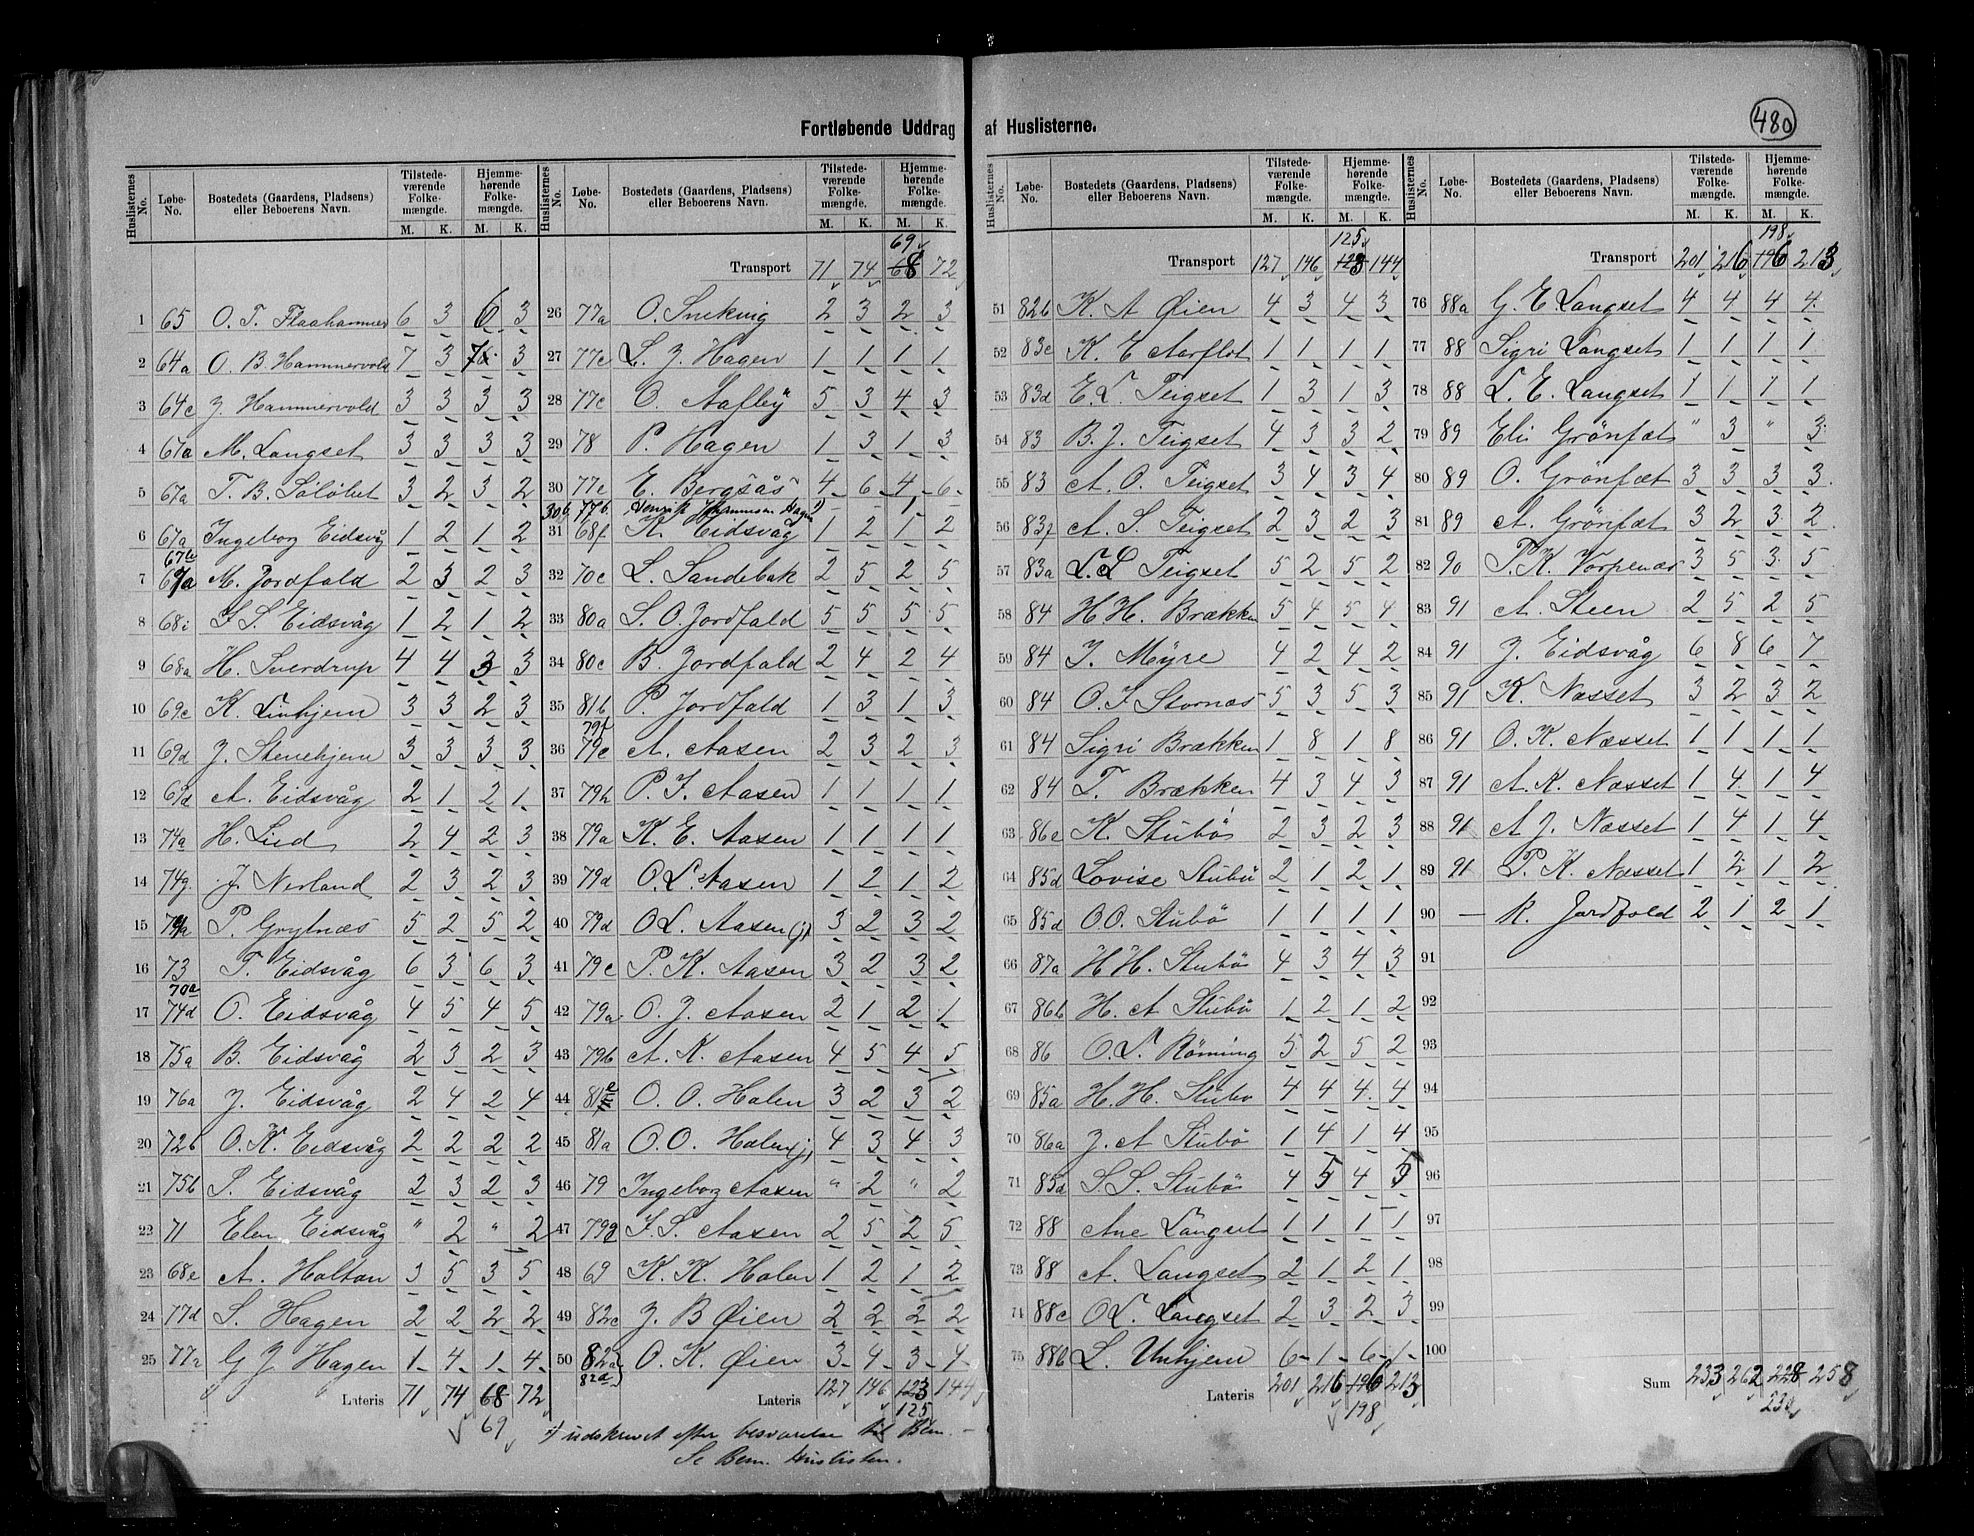 480
Fortløbende Uddrag af Huslisterne.
Huslisternes No. Løbe-No. Bostedets (Gaardens, Pladsens) eller Beboerens Navn. Tilstedeværende Folkemængde. M. K. Hjemmehørende Folkemængde. M. K.
1 65 O. T. Flaahammer 6 3 6 3
2 64a O. B. Hammervold 7 3 7 3
3 64c J. Hammervold 3 3 3 3
4 67a M. Langset 3 3 3 3
5 67a T. B. Sølølset 3 2 3 2
6 67a Ingeborg Eidsvåg 1 2 1 2
67b
7 67a M. Jordfald 2 3 2 3
8 68i I. S. Eidsvåg 1 2 1 2
9 68a H. Sverdrup 4 4 3 3
10 69c K. Linhjem 3 3 2 3
11 69d J. Stenehjem 3 3 3 3
12 69d A. Eidsvåg 2 1 2 1
13 74a H. Lied 2 4 2 3
14 74g J. Nerland 2 3 2 3
15 74a P. Grytnæs 5 2 5 2
16 73 T. Eidsvåg 6 3 6 3
70a
17 74d O. Eidsvåg 4 5 4 5
18 75a B. Eidsvåg 2 3 2 3
19 76a J. Eidsvåg 2 4 2 4
20 72b O. K. Eidsvåg 2 2 2 2
21 75b S. Eidsvåg 2 3 2 3
22 71 Elen Eidsvåg " 2 " 2
23 68e A. Holtan 3 5 3 5
24 77d S. Hagen 2 2 2 2
25 77a G J Hagen 1 4 1 4
Lateris 71 74 68 72
69
Huslisternes No. Løbe-No. Bostedets (Gaardens, Pladsens) eller Beboerens Navn. Tilstedeværende Folkemængde. M. K. Hjemmehørende Folkemængde. M. K.
69
Transport 71 74 68 72
26 77a O. Snekvig 2 3 2 3
27 77c L. J. Hagen 1 1 1 1
28 77c O. Aafløy 5 3 4 3
29 78 P. Hagen 1 3 1 3
30 77e E. Bergsås 4 6 4 6
30b 77b Henrik Hermansen Hagen 1
31 68f K. Eidsvåg 1 2 1 2
32 70c L. Sandebak 2 5 2 5
33 80a L. O. Jordfald 5 5 5 5
34 80c B. Jordfald 2 4 2 4
35 81b P. Jordfald 1 3 1 3
79f
36 79e A. Aasen 2 3 2 3
37 79h P. I. Aasen 1 1 1 1
38 79a K. E. Aasen 1 1 1 1
39 79d O. L. Aasen 1 2 1 2
40 79d O L. Aasen (j) 3 2 3 2
41 79c P. K. Aasen 3 2 3 2
42 79a O. J. Aasen 2 1 2 1
43 79b A. K. Aasen 4 5 4 5
44 81e O. O. Holen 3 2 3 2
45 81a O. O. Holen (j) 4 3 4 3
46 79 Ingeborg Aasen " 2 " 2
47 79g I. S. Aasen 2 5 2 5
48 69 K. K. Holen 1 2 1 2
49 82c J. B Øien 2 2 2 2
50 82a O. K. Øien 3 4 3 4
82d
Lateris 127 146 123 144
125
udskrevet efter besvarelse til Bem.
Se Bem. Huslisten.
Huslisternes No. Løbe-No. Bostedets (Gaardens, Pladsens) eller Beboerens Navn. Tilstedeværende Folkemængde. M. K. Hjemmehørende Folkemængde. M. K.
125
Transport 127 146 123 144
51 82b K. A Øien 4 3 4 3
52 83c K. E Aarflot 1 1 1 1
53 83d E. L. Teigset 1 3 1 3
54 83 B. J. Teigset 4 3 3 2
55 83 A. O. Teigset 3 4 3 4
56 83f A. S. Teigset 2 3 2 3
57 83a L. L Teigset 5 2 5 2
58 84 H H. Brækken 5 4 5 4
59 84 I. Myre 4 2 4 2
60 84 O. I Stornæs 5 3 5 3
61 84 Sigri Brækken 1 8 1 8
62 84 T. Brækken 4 3 4 3
63 86c K. Stubø 2 3 2 3
64 85d Lovise Stubø 2 1 2 1
65 85d O O. Stubø 1 1 1 1
66 87a H H. Stubø 4 3 4 3
67 86b H. A Stubø 1 2 1 2
68 86 O. L. Rønning 5 2 5 2
69 85a H. H. Stubø 4 4 4 4
70 86a J. A Stubø 1 4 1 4
71 85d S. S. Stubø 4 5 4 5
72 88 Ane Langset 1 1 1 1
73 88 A. Langset 2 1 2 1
74 88c O L. Langset 2 3 2 3
75 88b L. Unhjem 6 1 6 1
Lateris 201 216 196 213
198
Huslisternes No. Løbe-No. Bostedets (Gaardens, Pladsens) eller Beboerens Navn. Tilstedeværende Folkemængde. M. K. Hjemmehørende Folkemængde. M. K.
198
Transport 201 216 196 213
76 88a G. E. Langset 4 4 4 4
77 88 Sigri Langset 1 1 1 1
78 88 L. E. Langset 1 1 1 1
79 89 Eli Grønfæt " 3 " 3
80 89 O. Grønfæt 3 3 3 3
81 89 A. Grønfæt 3 2 3 2
82 90 T. K. Vorpenæs 3 5 3 5
83 91 A. Steen 2 5 2 5
84 91 J. Eidsvåg 6 8 6 7
85 91 K. Næsset 3 2 3 2
86 91 O. K. Næsset 1 1 1 1
87 91 A. K. Næsset 1 4 1 4
88 91 A J. Næsset 1 4 1 4
89 91 P. K. Næsset 1 2 1 2
90 — K. Jordfald 2 1 2 1
91
92
93
94
95
96
97
98
99
100
Sum 233 262 228 258
230